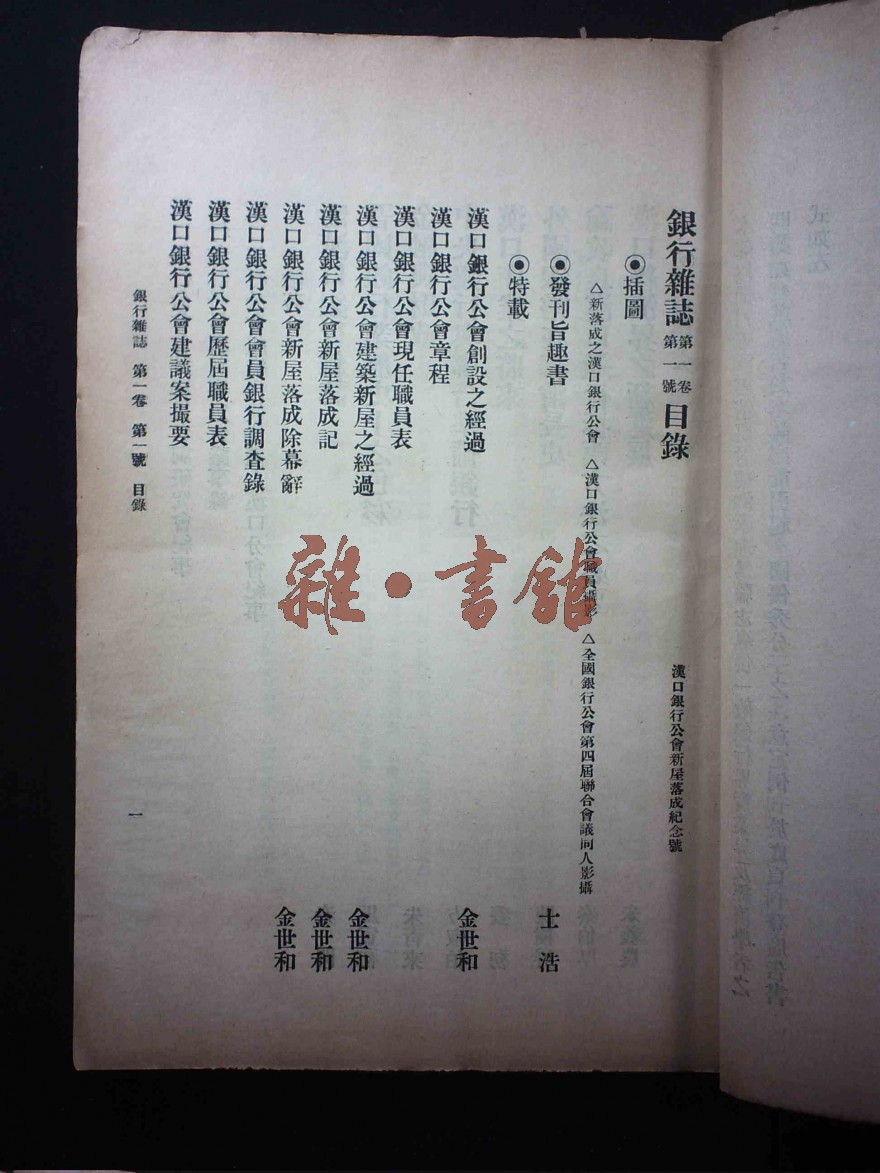 銀行雜誌 第一卷 第一號 目錄
漢口銀行公會新屋落成紀念號
◉插圖
△新落成之漢口銀行公會 △漢口銀行公會職員攝影 △全國銀行公會第四屆聯合會議同人影攝
◉發刊旨趣書 士浩
◉特載
漢口銀行公會創設之經過 金世和
漢口銀行公會章程
漢口銀行公會現任職員表
漢口銀行公會建築新屋之經過 金世和
漢口銀行公會新屋落成記 金世和
漢口銀行公會新屋落成除幕辭 金世和
漢口銀行公會會員銀行調查錄
漢口銀行公會歷屆職員表
漢口銀行公會建議案撮要
銀行雜誌 第一卷 第一號 目錄
一
雜·書館